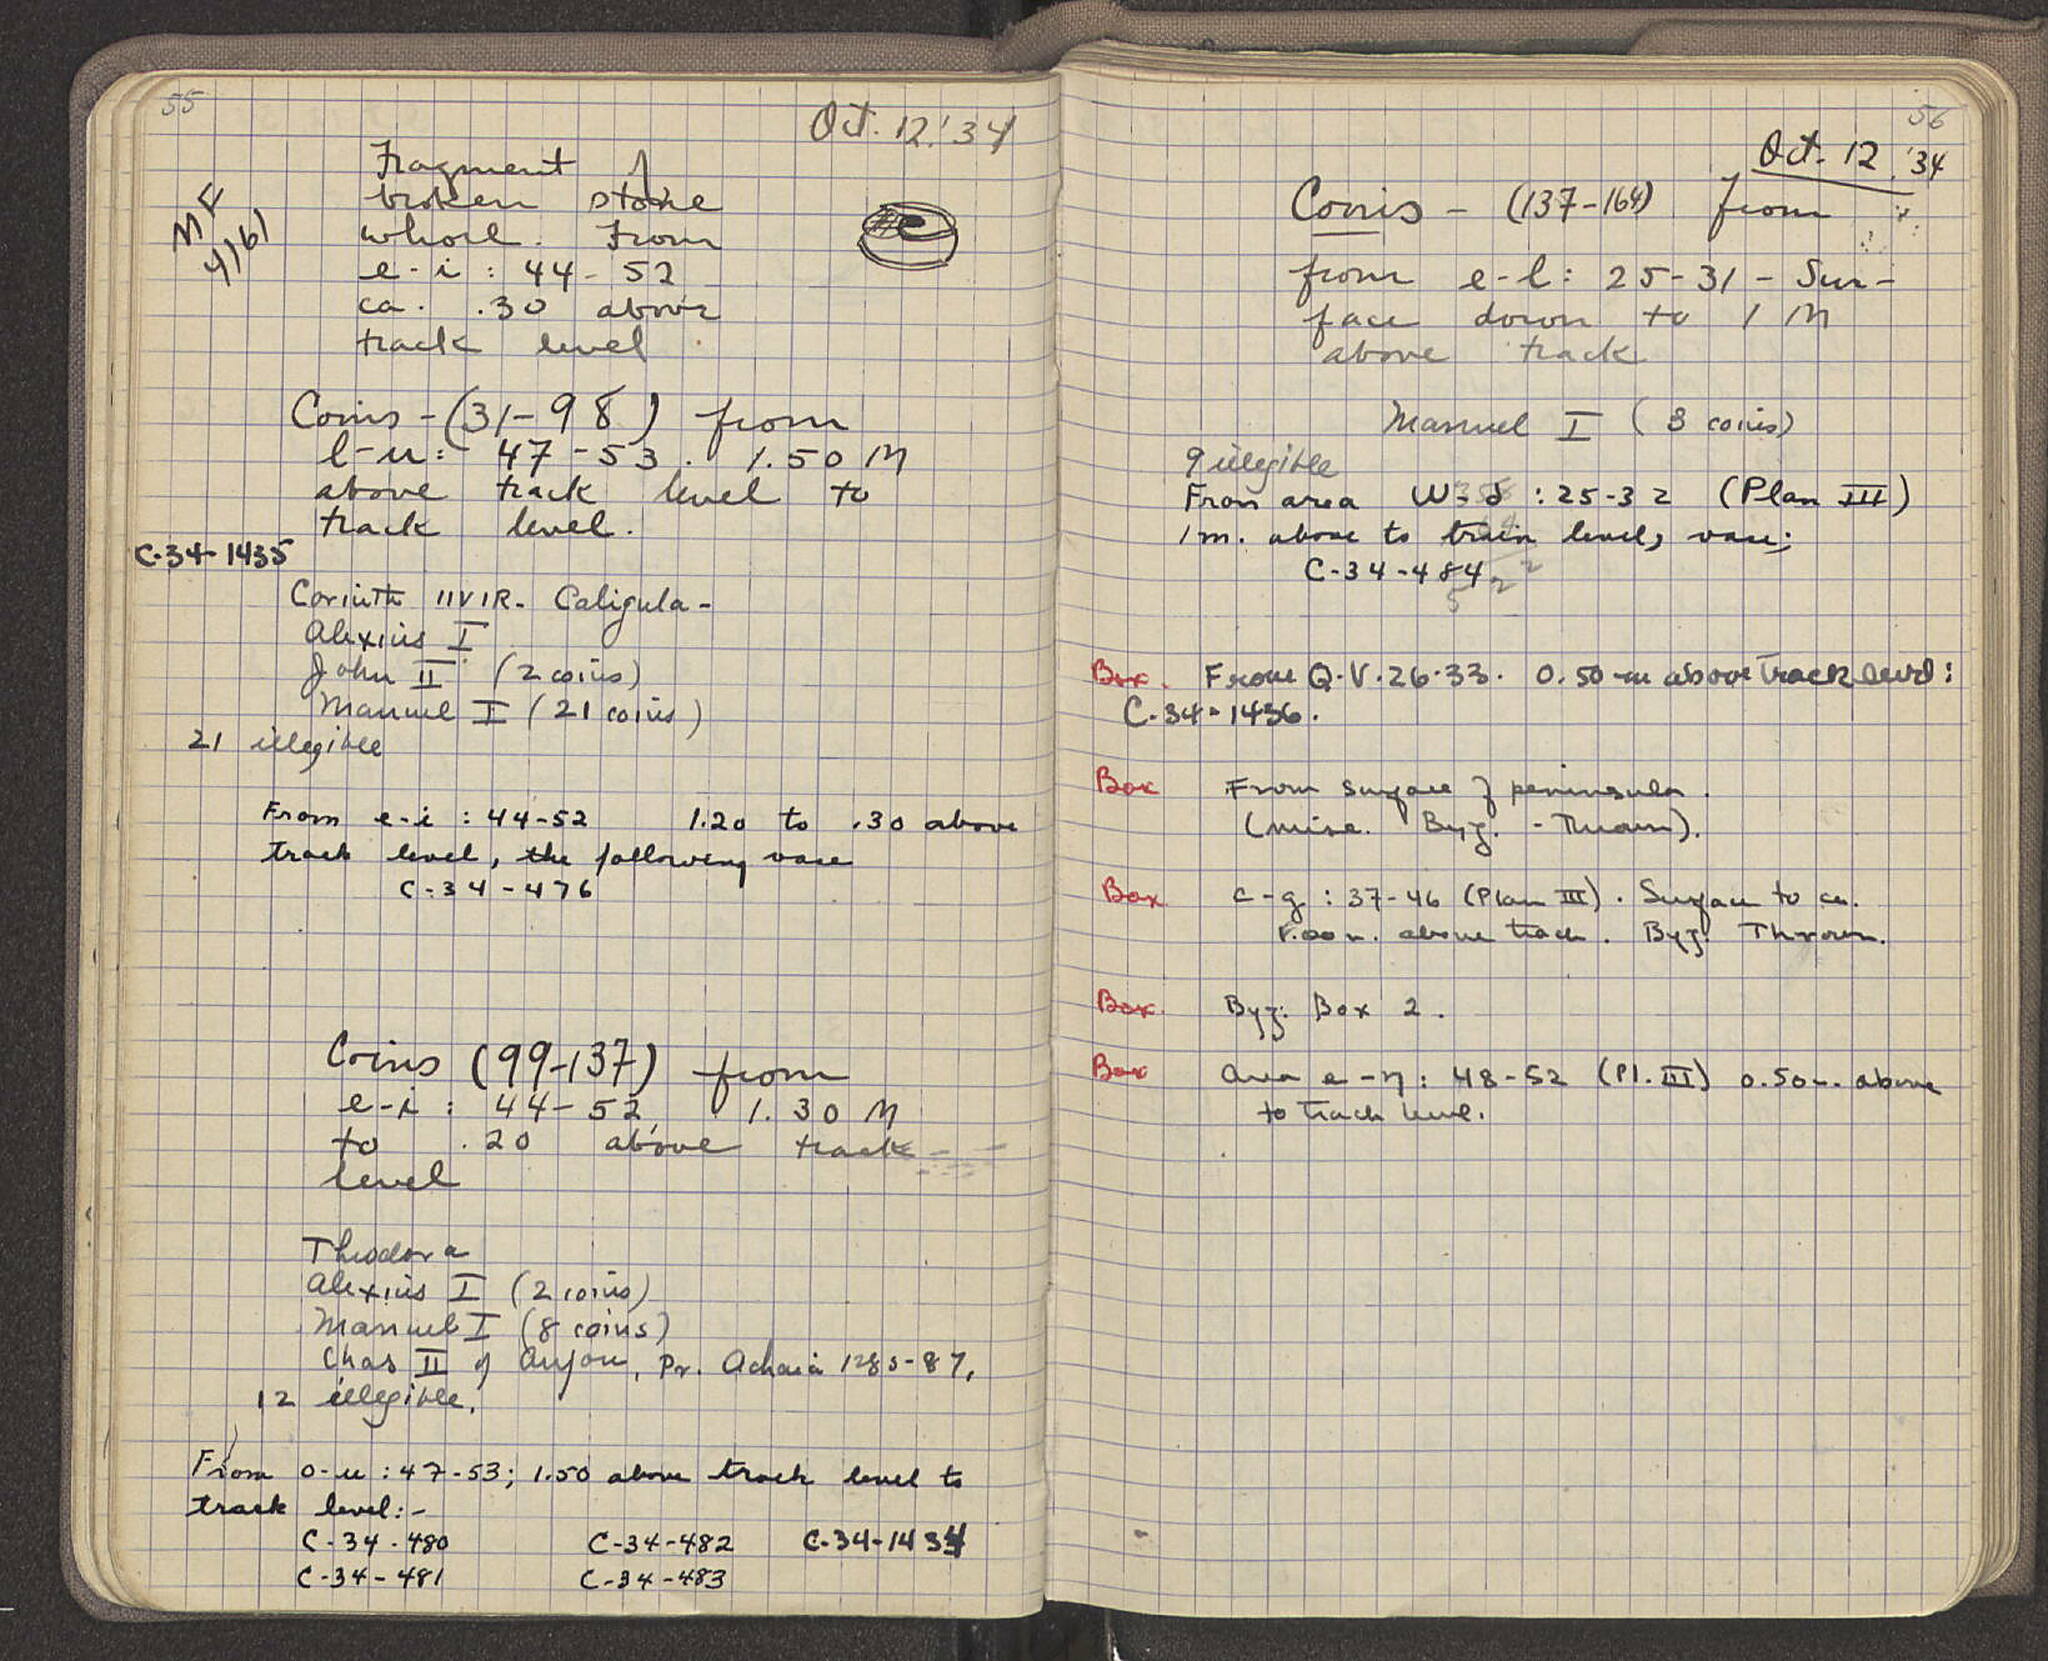 55
Oct. 12, '34
MF
4161
Fragment of
broken stone
whorl. From
e-i : 44-52
ca. .30 above
track level
Coins - (31-98) from
l-u: 47-53. 1.50 M
above track level to
track level.
C-34-1435
Corinth IIVIR. Caligula -
Alexius I
John II (2 coins)
Manuel I (21 coins)
21 illegible
From e-i : 44-52 1.20 to .30 above
track level, the following vase
C-34-476
Coins (99-137) from
e-i : 44-52, 1.30 M
to .20 above track
level
Theodora
Alexius I (2 coins)
Manuel I (8 coins)
Chas II of Anjou, Pr. Achaia 1285-87,
12 illegible.
From o-u : 47-53; 1.50 above track level to
track level:-
C-34-480 C-34-482 C-34-1434
C-34-481 C-34-483
56
Oct. 12, '34
Coins - (137-164) from
from e-l: 25-31 - Sur-
face down to 1 M
above track
Manuel I (3 coins)
9 illegible
From area : 25-32 (Plan III)
1m. above to train level, vase;
C-34-484
Box. From Q-V.26-33. 0.50 m above track level:
C-34-1436.
Box From surface of peninsula.
(misc. Byz. - Thrown).
Box c-g : 37-46 (Plan III). Surface to ca.
1.00 m. above track. Byz. Thrown.
Box. Byz. Box 2.
Box Area e-η: 48-52 (Pl. III) 0.50 m. above
to track level.